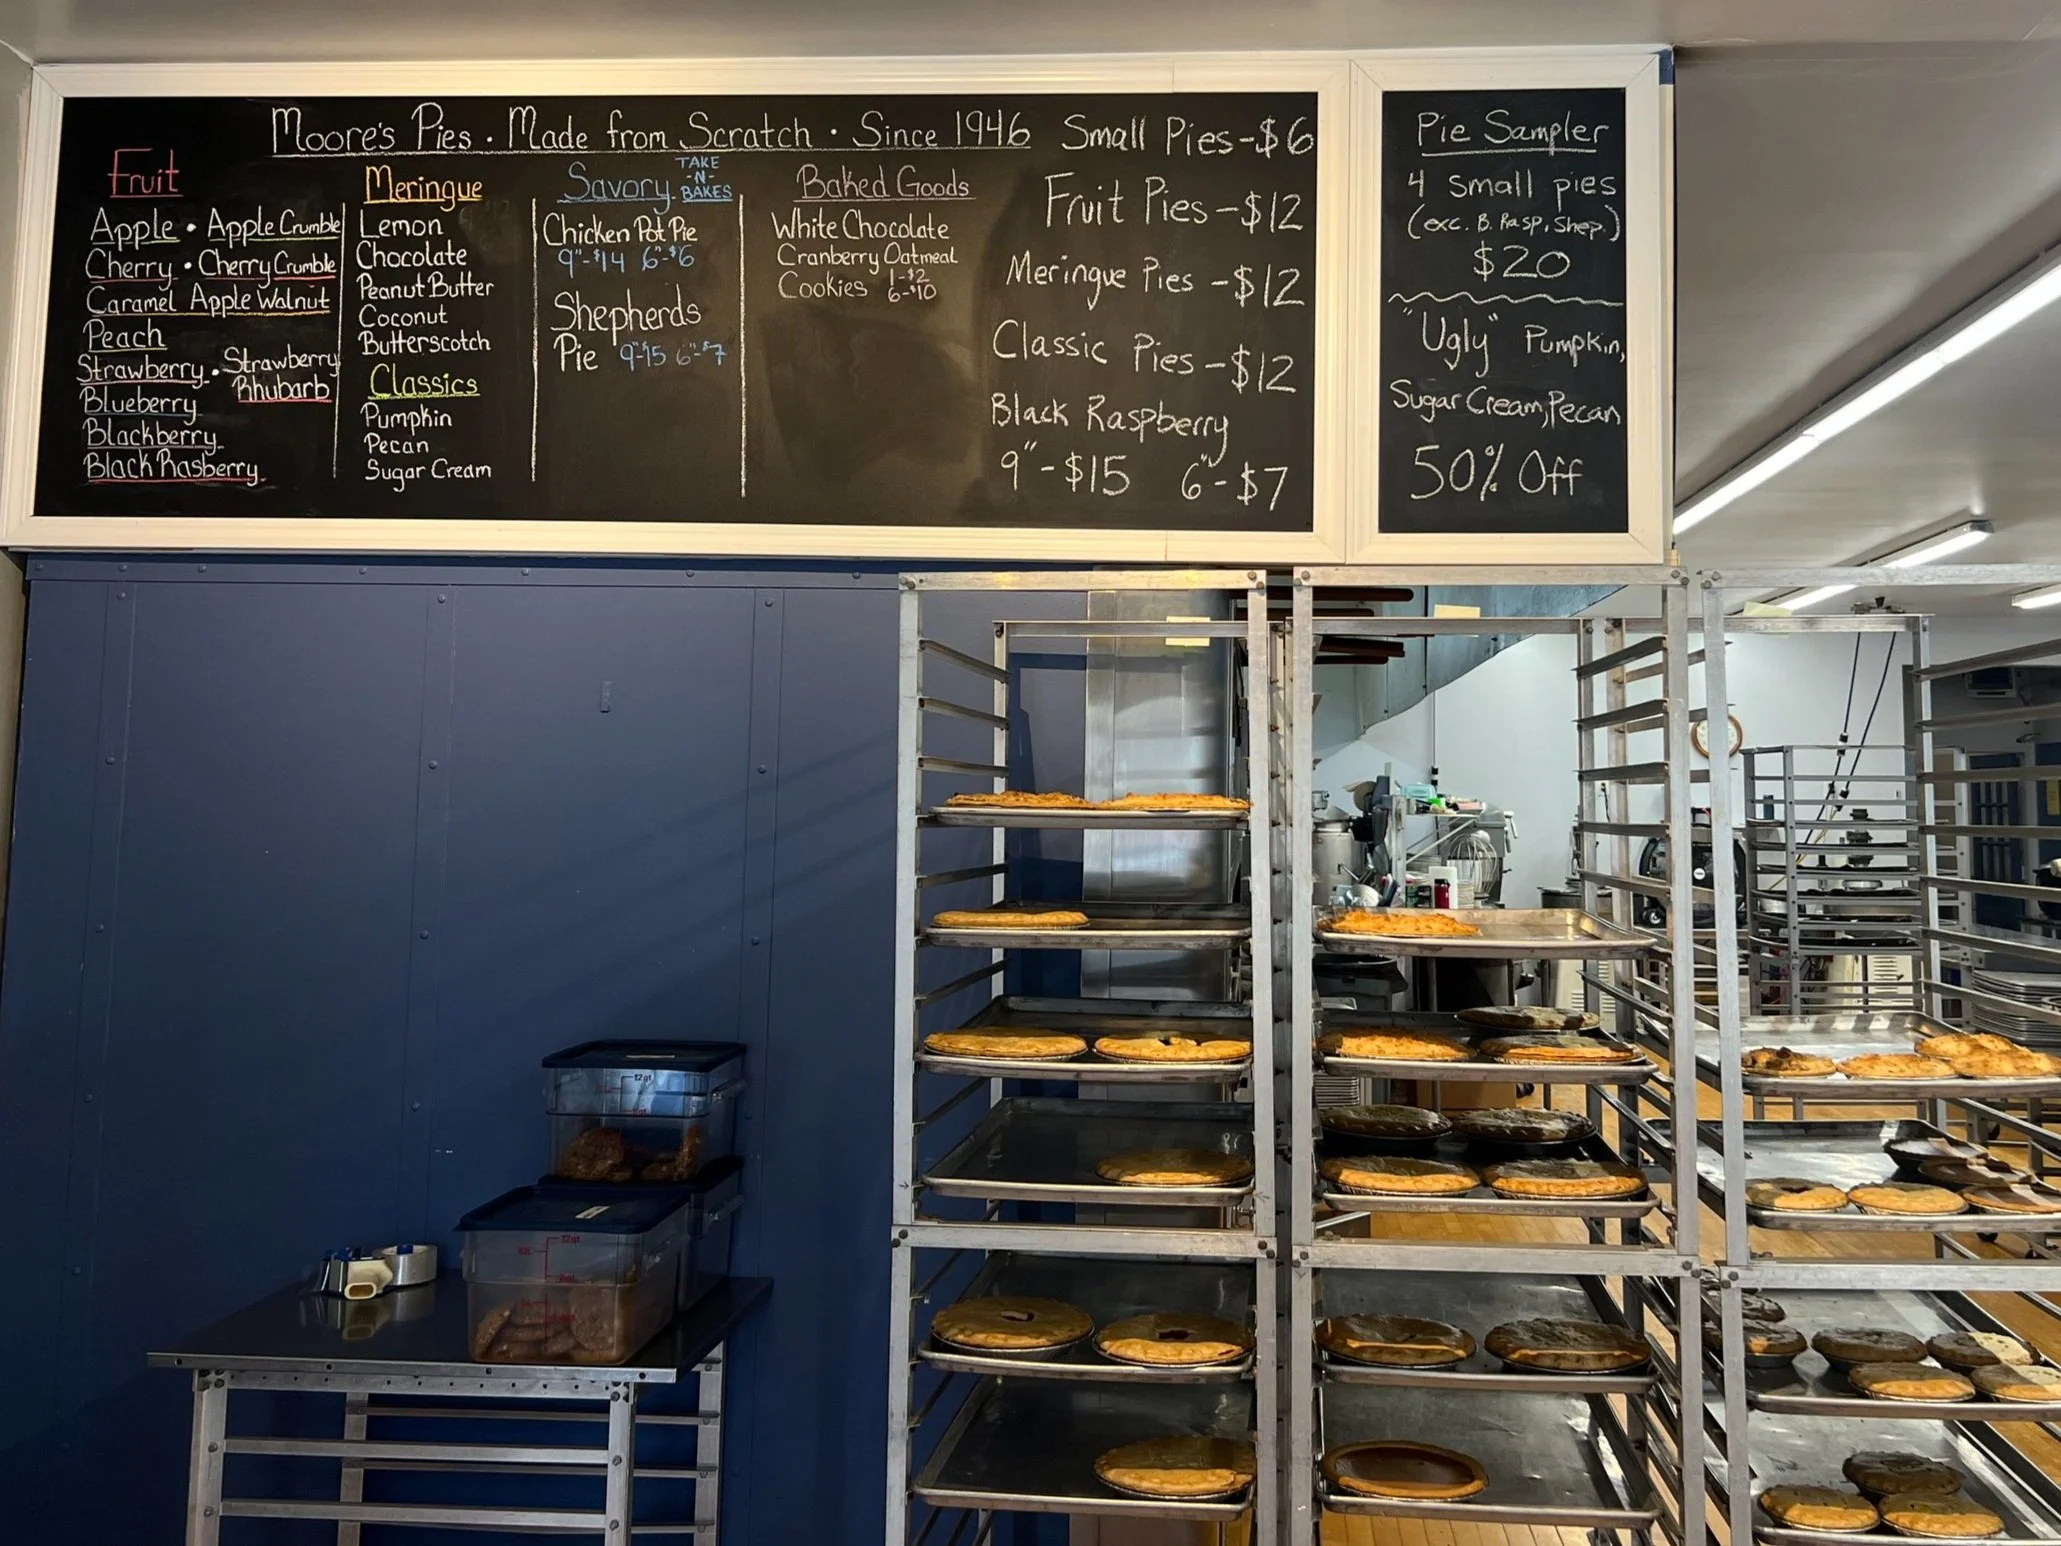 Moore's Pies · Made from Scratch · Since 1946
Fruit
Apple · Apple Crumble
Cherry · Cherry Crumble
Caramel Apple Walnut
Peach
Strawberry · Strawberry
Rhubarb
Blueberry
Blackberry
Black Rasberry
Meringue
Lemon
Chocolate
Peanut Butter
Coconut
Butterscotch
Classics
Pumpkin
Pecan
Sugar Cream
Savory
TAKE
-N-
BAKES
Chicken Pot Pie
9"-$14 6"-$6
Shepherds
Pie 9"-$15 6"-$7
Baked Goods
White Chocolate
Cranberry Oatmeal
Cookies 1-$2
6-$10
Small Pies-$6
Fruit Pies-$12
Meringue Pies-$12
Classic Pies-$12
Black Raspberry
9"-$15 6"-$7
Pie Sampler
4 small pies
(exc. B. Rasp, Shep.)
$20
"Ugly" Pumpkin,
Sugar Cream, Pecan
50% Off
12qt
12qt